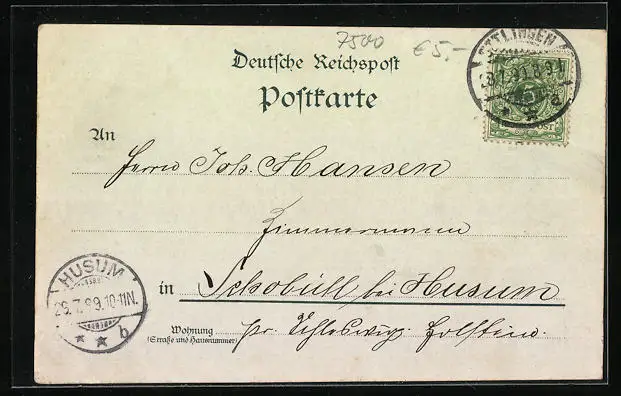 7500 €5,-
Deutsche Reichspost
Postkarte
An
Herrn Joh. Hansen
Zimmermann
in Schobüll bei Husum
Wohnung
(Straße und Hausnummer)
pr. Schleswig. Holstein.
HUSUM
10-11N.
* * b